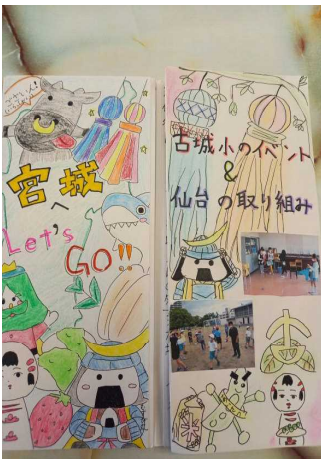 宮城
へ
Let's
GO!!
古城小のイベント
&
仙台の取り組み